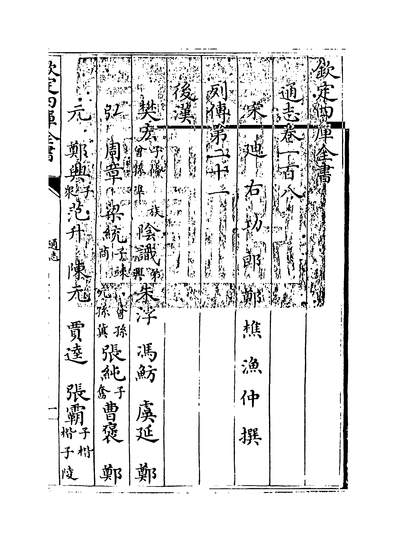 欽定四庫全書
通志卷一百八
宋迪右功郎鄭樵漁仲撰
列傳第二十一
後漢
樊宏子儵 族曾孫準 陰識弟興 朱浮 馮魴 虞延 鄭
弘 周章 梁統子竦 曾孫商 玄孫冀 張純子奮 曹褒 鄭
元 鄭興子衆 范升 陳元 賈逵 張霸子楷 楷子陵
欽定四庫全書
通志
一